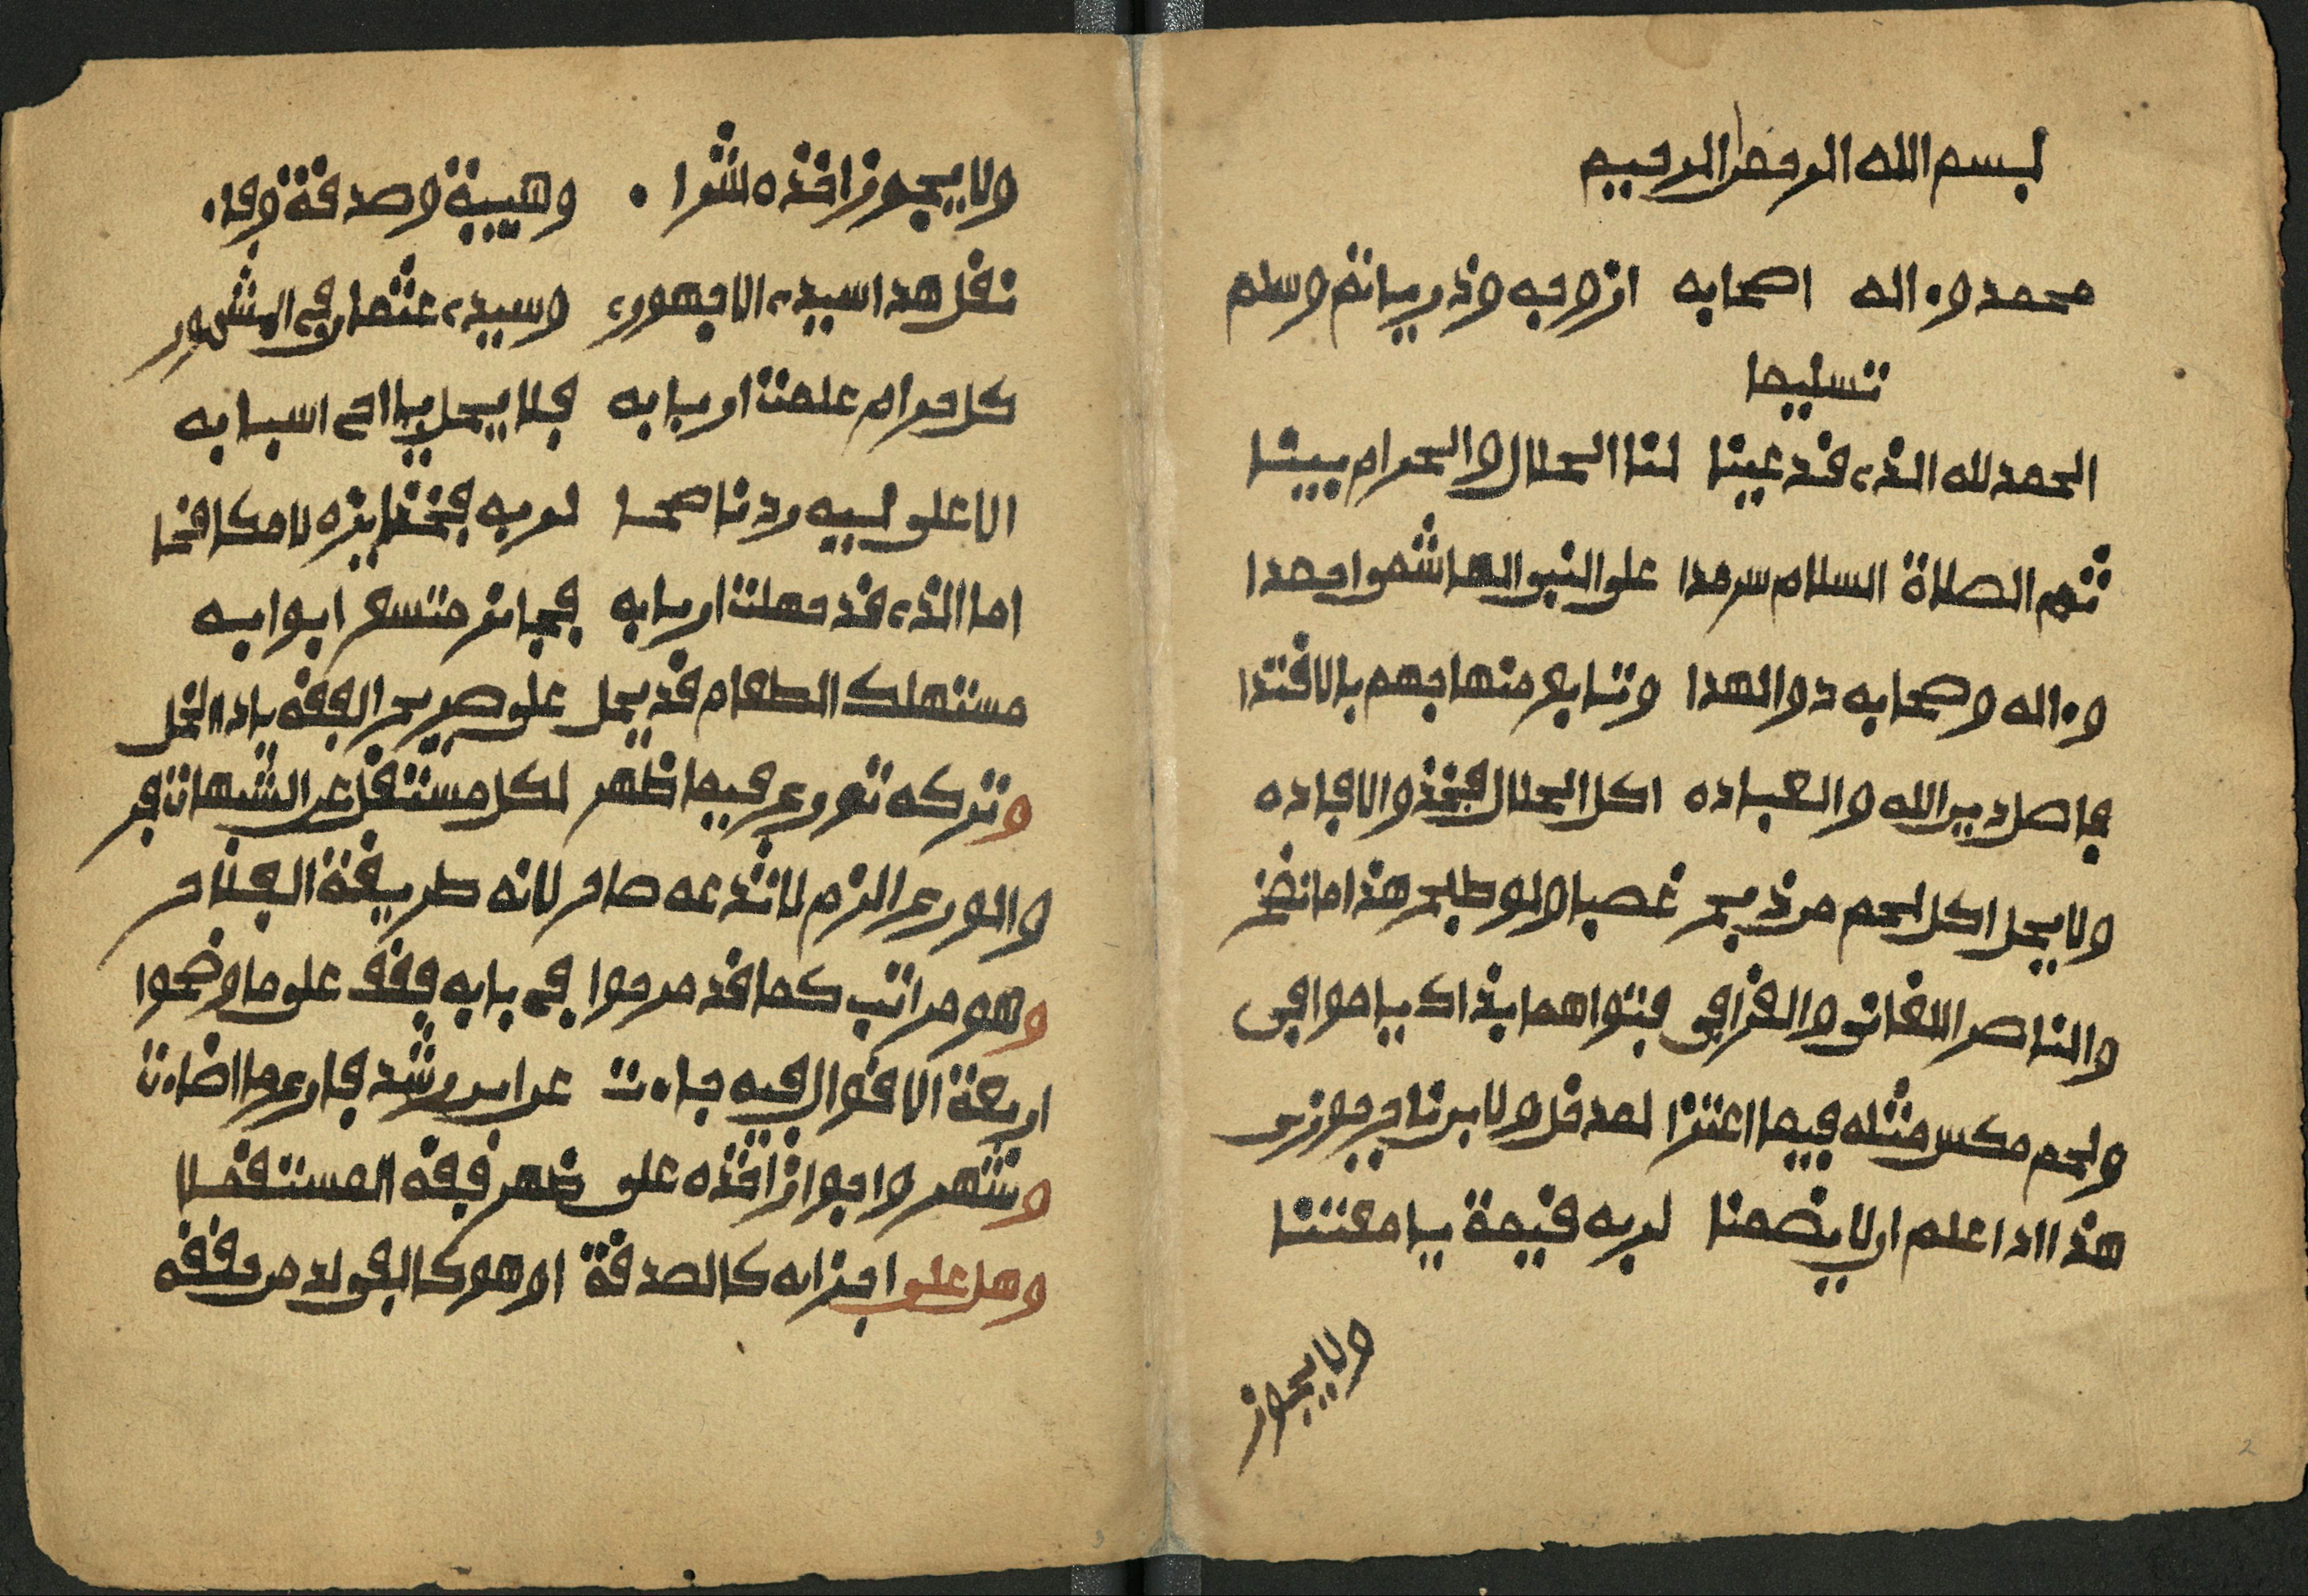 بسم الله الرحمن الرحيم
محمد وءاله اصحابه ازوجه وذرياته وسلم
تسليما
الحمد لله الذي قد عينا لنا الحلال والحرام بينا
ثم الصلاة السلام سرمدا على النبي الهاشمي احمدا
وءاله وصحابه ذو الهدا وتابع منهاجهم بالاقتدا
فاصل دين الله والعباده اكل الحلال فخذ والافاده
ولا يحل اكل لحم من ذبح غصبا ولو طبخ هذا ما نضح
والناصر اللقاني والقرافي فتواهما بذاك يا موافي
ولحم مكس مثله فيما اعتزا لمد قل ولابن ناج جوزن
هذا اذا علم ان لا يضمنا لربه قيمة يا معتنا
ولا يجوز
ولا يجوز اخذه شرا . وهيبة وصدقة وفا.
نقل هذا سيدي الاجهوري وسيدي عثمان في المشهور
كل حرام علمت اربابه فلا يحل يا اخ اسبابه
الا على نبيه رد ناصحا لربه فخذ لا مكافحا
اما الذي قد جهلت اربابه فجائز متسع ابوابه
مستهلك الطعام قد يحل على صريح الفقه ياذ الخل
وتركه تورع فيما ظهر لكل مستقل عن الشبهات فر
والورع الزم لا تدعه صاح لانه طريقة الفلاح
وهو مراتب كما قد صرحوا في بابه فقف على ما وضحوا
اربعة الاقوال فيه جاءت عن ابن رشد فارع ما اضاءت
وشهروا جواز اخذه على ظهر فقه المستقلا
وهل على اجزائه كالصدقة او هو كالفي لد من حققه